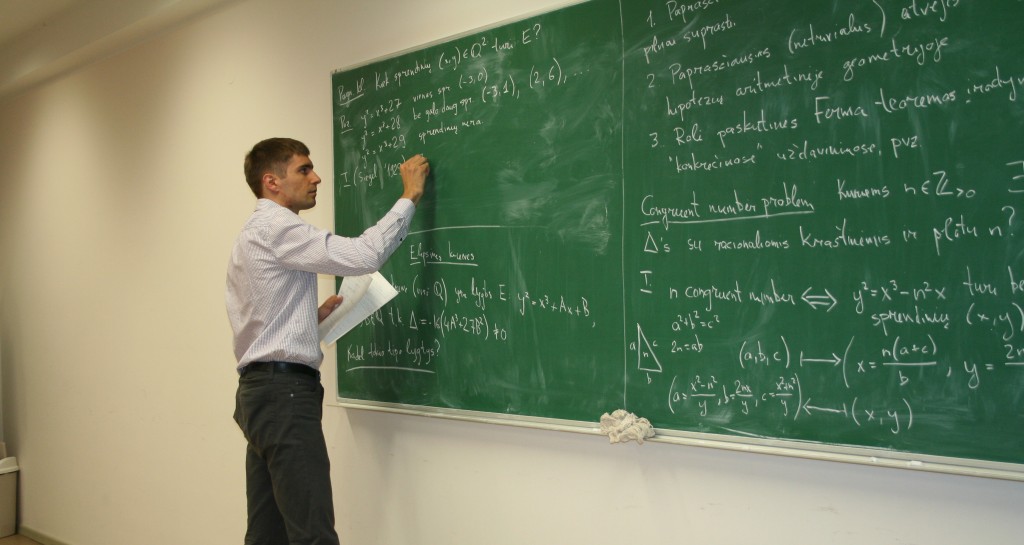 Kiek sprendinių (x,y) ∈ Q² turi E?
Pvz y² = x³-27 vienas spr. (3,0)
y² = x³+28 be galo daug spr. (-3,1), (2,6), ...
y² = x³+29 sprendinių nėra
T (Siegel)
Elipsinės kreivės
(virš Q) yra lygtis E y² = x³+Ax+B,
Δ = -16(4A³+27B²) ≠ 0
Kodėl tokio tipo lygtys?
1. Paprasč
pilnai suprasti.
2 Paprasčiausias (netrivialus) atvejis
hipotezių aritmetinėje geometrijoje
3. Rolė paskutinės Ferma teoremos įrodym
"konkrečiuose" uždaviniuose, pvz.
Congruent number problem Kuriems n ∈ Z>0 ∃
Δ's su racionaliomis kraštinėmis ir plotu n?
T n congruent number ⟺ y² = x³-n²x turi be
sprendinių (x,y)
a²+b²=c²
2n=ab
a n c
b
(a,b,c) ⟼ (x = n(a+c)/b, y = 2n
(a = x²-n²/y, b = 2nx/y, c = x²+n²/y) ⟻ (x,y)